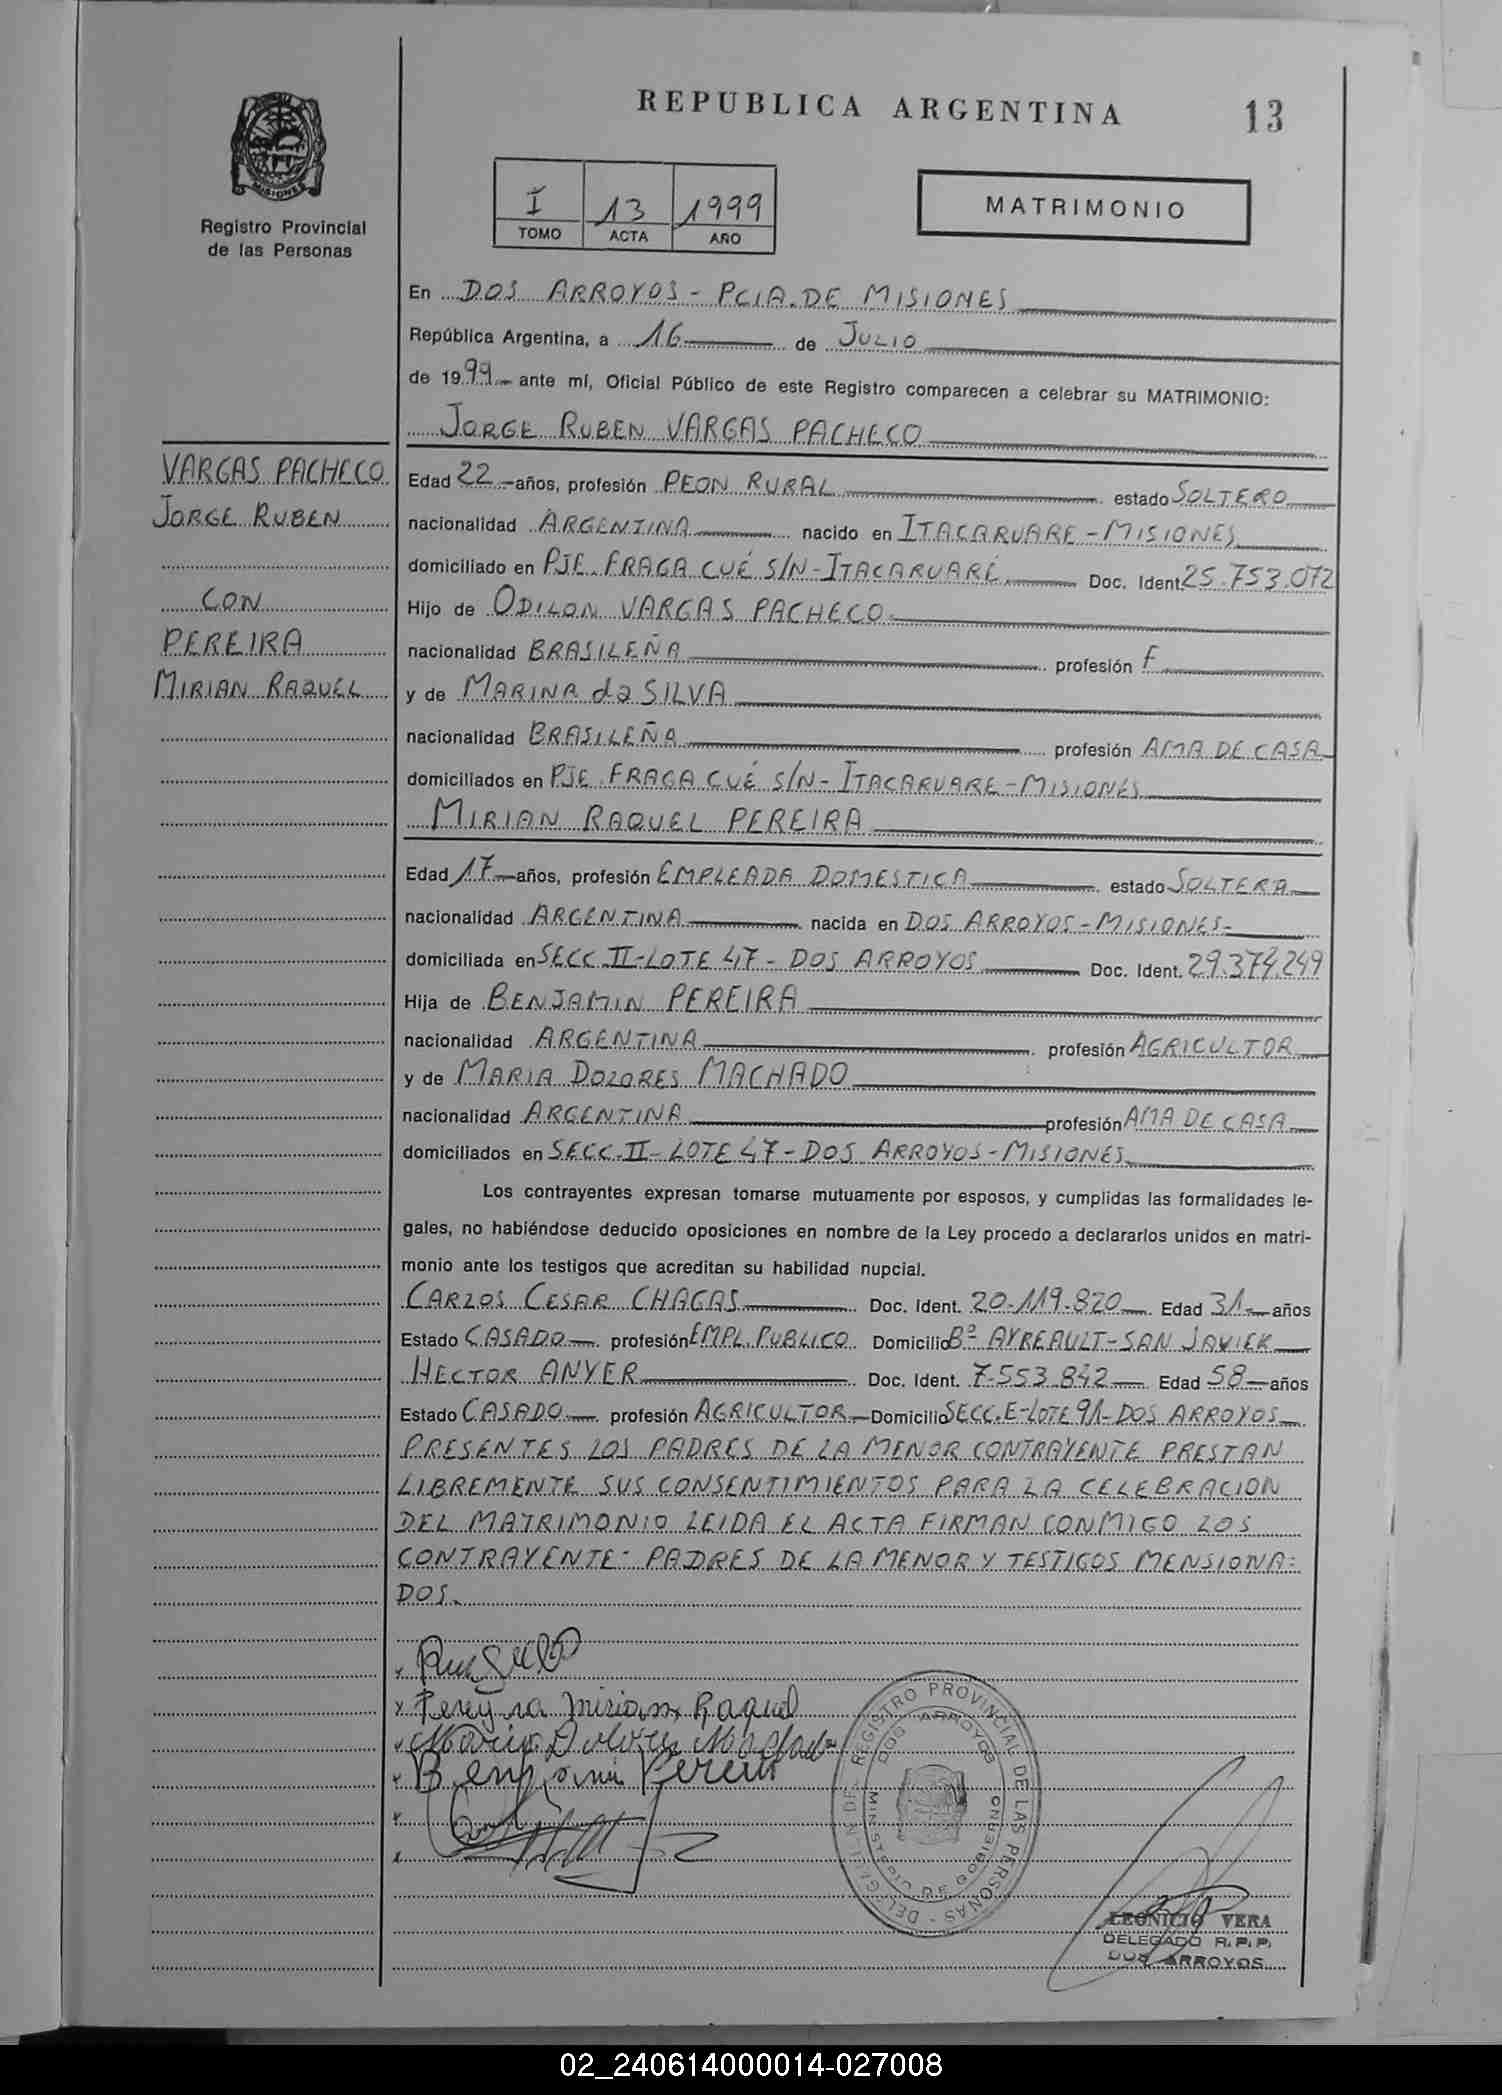 REPUBLICA ARGENTINA
13
MISIONES
Registro Provincial
de las Personas
I 13 1999
TOMO ACTA AÑO
MATRIMONIO
En DOS ARROYOS - PCIA. DE MISIONES
República Argentina, a 16 de JULIO
de 1999 ante mí, Oficial Público de este Registro comparecen a celebrar su MATRIMONIO:
JORGE RUBEN VARGAS PACHECO
VARGAS PACHECO
JORGE RUBEN
CON
PEREIRA
MIRIAN RAQUEL
Edad 22 años, profesión PEON RURAL estado SOLTERO
nacionalidad ARGENTINA nacido en ITACARUARE - MISIONES
domiciliado en PJE. FRAGA CUÉ S/N - ITACARUARÉ Doc. Ident. 25.753.072
Hijo de ODILON VARGAS PACHECO
nacionalidad BRASILEÑA profesión F
y de MARINA da SILVA
nacionalidad BRASILEÑA profesión AMA DE CASA
domiciliados en PJE. FRAGA CUÉ S/N - ITACARUARE - MISIONES
MIRIAN RAQUEL PEREIRA
Edad 17 años, profesión EMPLEADA DOMESTICA estado SOLTERA
nacionalidad ARGENTINA nacida en DOS ARROYOS - MISIONES -
domiciliada en SECC. II - LOTE 47 - DOS ARROYOS Doc. Ident. 29.374.249
Hija de BENJAMIN PEREIRA
nacionalidad ARGENTINA profesión AGRICULTOR
y de MARIA DOLORES MACHADO
nacionalidad ARGENTINA profesión AMA DE CASA
domiciliados en SECC. II - LOTE 47 - DOS ARROYOS - MISIONES
Los contrayentes expresan tomarse mutuamente por esposos, y cumplidas las formalidades le-
gales, no habiéndose deducido oposiciones en nombre de la Ley procedo a declararlos unidos en matri-
monio ante los testigos que acreditan su habilidad nupcial.
CARLOS CESAR CHAGAS Doc. Ident. 20.119.820 Edad 31 años
Estado CASADO profesión EMPL. PUBLICO Domicilio Bº AYREAULT - SAN JAVIER
HECTOR ANYER Doc. Ident. 7.553.842 Edad 58 años
Estado CASADO profesión AGRICULTOR Domicilio SECC. E - LOTE 91 - DOS ARROYOS
PRESENTES LOS PADRES DE LA MENOR CONTRAYENTE PRESTAN
LIBREMENTE SUS CONSENTIMIENTOS PARA LA CELEBRACION
DEL MATRIMONIO LEIDA EL ACTA FIRMAN CONMIGO LOS
CONTRAYENTE - PADRES DE LA MENOR Y TESTIGOS MENSIONA=
DOS.
x
x Pereyra Miriam Raquel
x Maria Dolores Machado
x Benjamin Pereira
x
x
REGISTRO PROVINCIAL DE LAS PERSONAS - DELEGACION DE
DOS ARROYOS
MINISTERIO DE GOBIERNO
LEONICIO VERA
DELEGADO R. P. P.
DOS ARROYOS
02_240614000014-027008